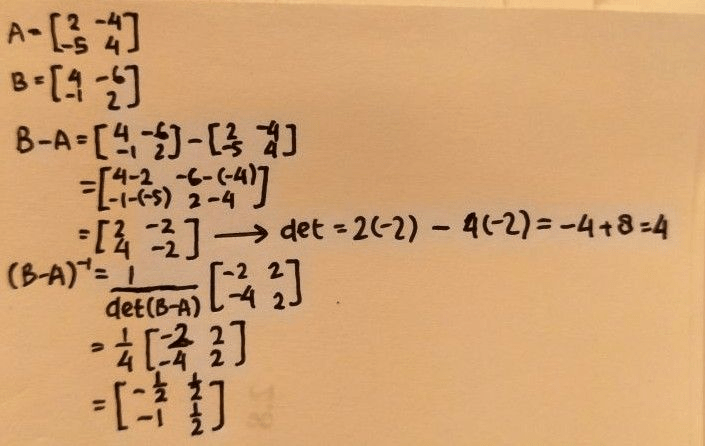 A = [2 -4
-5 4]
B = [4 -6
-1 2]
B-A = [4 -6
-1 2] - [2 -4
-5 4]
= [4-2 -6-(-4)
-1-(-5) 2-4]
= [2 -2
4 -2] → det = 2(-2) - 4(-2) = -4+8 = 4
(B-A)⁻¹ = 1/det(B-A) [-2 2
-4 2]
= 1/4 [-2 2
-4 2]
= [-1/2 1/2
-1 1/2]